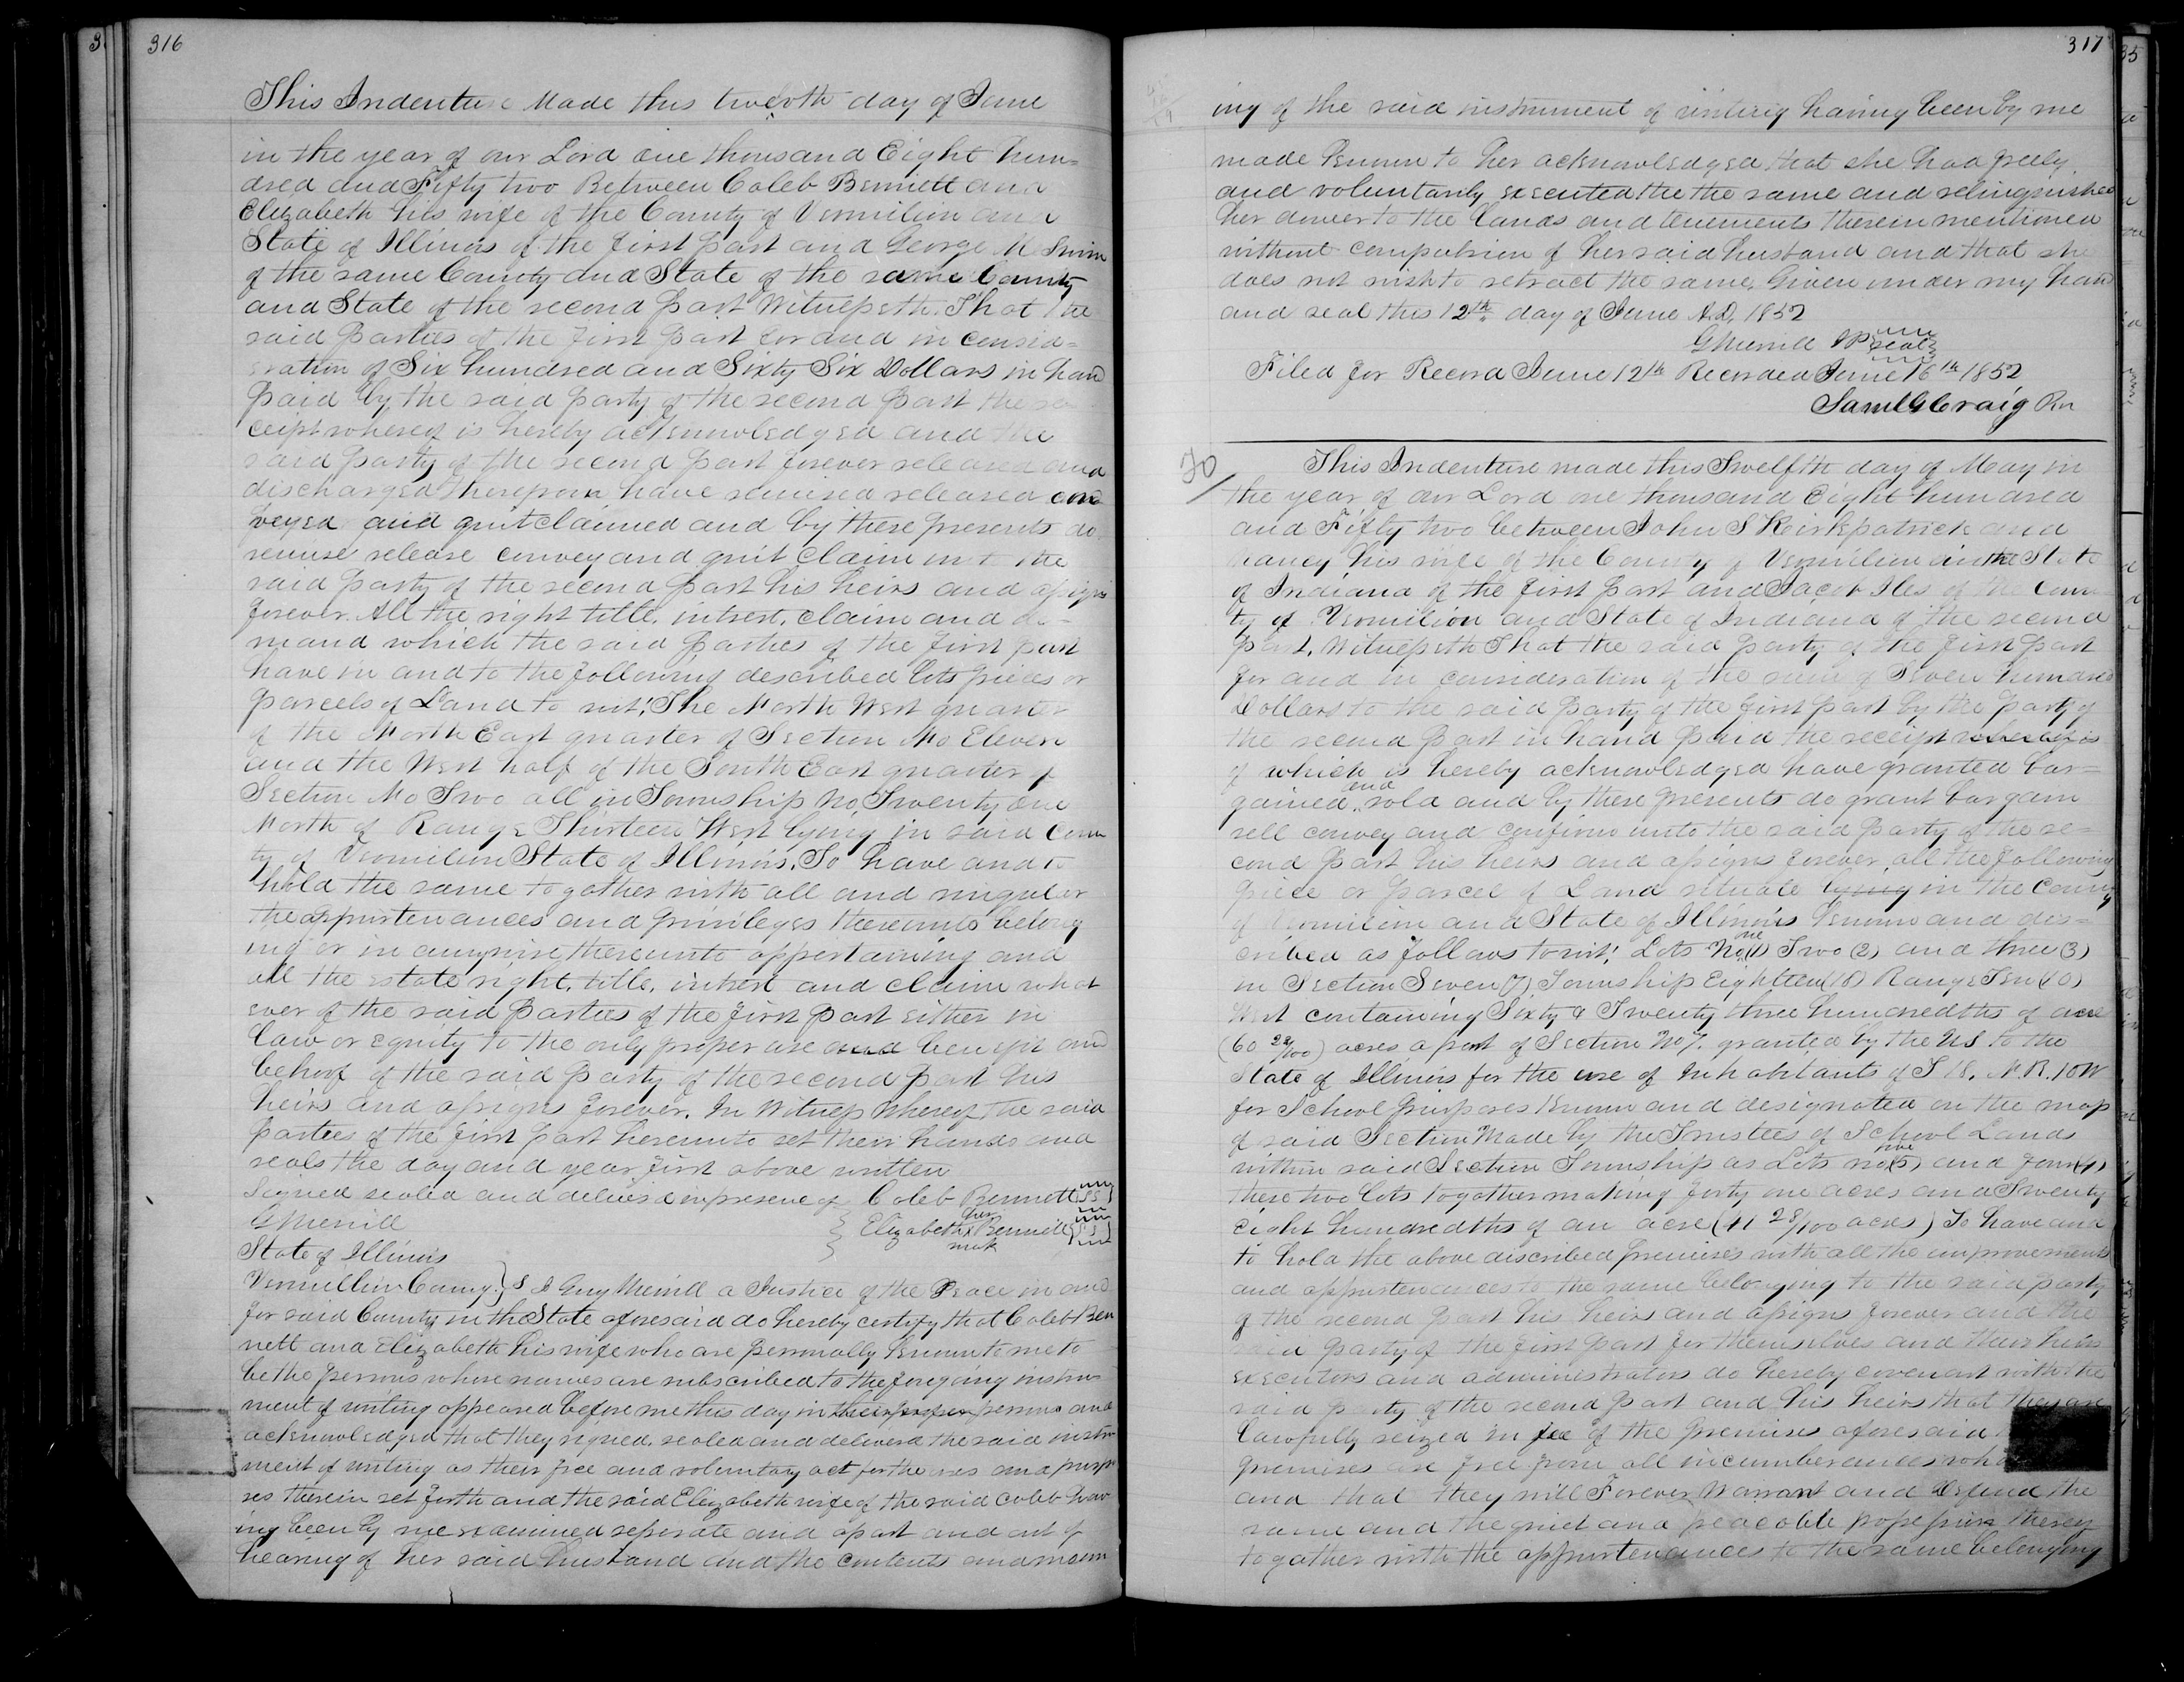 316
This Indenture Made this twelvth day of June
in the year of our Lord one thousand Eight hun=
dred and Fifty two Between Caleb Bennett and
Elizabeth his wife of the County of Vermilion and
State of Illinois of the first part and George M Swim
of the same County and State of the same County
and State of the second part Witnesseth. That the
said Parties of the first part for and in consid=
eration of Six hundred and Sixty Six Dollars in hand
paid by the said party of the second part the re
ceipt whereof is hereby acknowledged and the
said party of the second part forever released and
discharged therefrom have remised released con
veyed and quitclaimed and by these presents do
remise release convey and quit claim unto the
said party of the second part his heirs and assigns
forever. All the right title, intrest, claim and de-
mand which the said parties of the first part
have in and to the following described lots pieces or
parcels of Land to wit; The North West quarter
of the North East quarter of Section No Eleven
and the West half of the South East quarter of
Section No Two all in Township No, Twenty one
North of Range Thirteen West lying in said Coun
ty of Vermilion State of Illinois, To have and to
hold the same togather with all and singular
the appurtenances and privileges thereunto belong
ing or in anywise thereunto appertaining and
all the estate right, title, intrest and claim what
ever of the said Parties of the first part either in
law or equity to the only proper use and benefit and
behoof of the said party of the second part his
heirs and assigns forever. In Witness whereof the said
parties of the first part hereunto set their hands and
seals the day and year first above written
Signed sealed and deliv'd in presence of } Caleb Bennett {SS}
G Merrill } Elizabeth her x mark Bennett {SS}
State of Illinois
Vermillion County } S I Guy Merrill a Justice of the Peace in and
for said County in the State aforesaid do hereby certify that Caleb Ben
nett and Elizabeth his wife who are personally known to me to
be the persons whose names are subscribed to the foregoing instru-
ment of writing appeared before me this day in their proper persons and
acknowledged that they signed, sealed and delivered the said instru
ment of writing as their free and voluntary act for the uses and purpo
ses therein set forth and the said Elizabeth wife of the said Caleb hav
ing been by me examined seperate and apart and out of
hearing of her said husband and the contents and mean
317
ing of the said instrument of writing having been by me
made known to her acknowledged, that she had freely
and voluntarily executed the the same and relinquished
her dower to the lands and tenements therein mentioned
without compulsion of her said husband and that she
does not wish to retract the same, Given under my hand
and seal this 12th day of June A.D, 1852
G Merrill JP {seal}
Filed for Record June 12th Recorded June 16th 1852
Saml G Craig Rr
70 This Indenture made this Twelfth day of May in
the year of our Lord one thousand Eight hundred
and Fifty two between John S Kirkpatrick and
Nancy his wife of the County of Vermilion in the State
of Indiana of the first part and Jacob Iles of the Coun
ty of Vermilion and State of Indiana of the second
part, Witnesseth That the said party of the first part
for and in consideration of the sum of Seven hundred
Dollars to the said party of the first part by the party of
the second part in hand paid the receipt
of which is hereby acknowledged have granted bar=
gained, and sold and by these presents do grant bargain
sell convey and confirm unto the said party of the se=
cond part his heirs and assigns forever, all the following
piece or parcel of Land situate lying in the County
of Vermilion and State of Illinois known and des=
cribed as follows towit; Lots No one (1) Two (2) and three (3)
in Section Seven (7) Township Eighteen (18) Range Ten (10)
West containing Sixty & Twenty three hundredths of acre
(60 23/100) acres a part of Section No 7. granted by the US to the
State of Illinois for the use of Inhabitants of T 18, N. R. 10 W
for School purposes known and designated on the map
of said Section Made by the Trustees of School Lands
within said Section Township as Lots no five (5) and four (4)
these two lots togather making forty one acres and Twenty
Eight hundredths of an acre (41 28/100 acres) To have and
to hold the above discribed premises with all the improvements
and appurtenances to the same belonging to the said party
of the second part his heirs and assigns forever and the
said party of the first part for themselves and their heirs
executors and administrators do hereby covenant with the
said party of the second part and his heirs that they are
lawfully seized in fee of the premises aforesaid
premises are free from all incumberances
and that they will Forever Warrant and Defend the
same and the quiet and peacable possession thereof
togather with the appurtenances to the same belonging